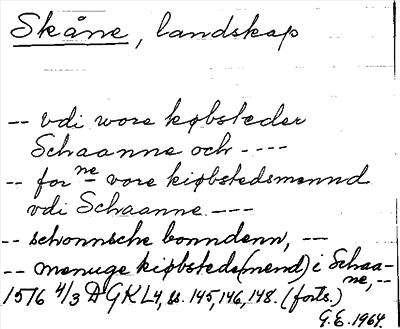 Skåne, landskap
-- vdi wore købsteder
Schaanne och ----
-- forne vore kiøbstedsmennd
vdi Schaanne ---
-- schonnsche bonndenn, --
-- menuge kiøbsteds(mend) i Schaa-
ne, --
1516 4/3 DGKL4, ss. 145, 146, 148. (forts.)
G.E. 1964.